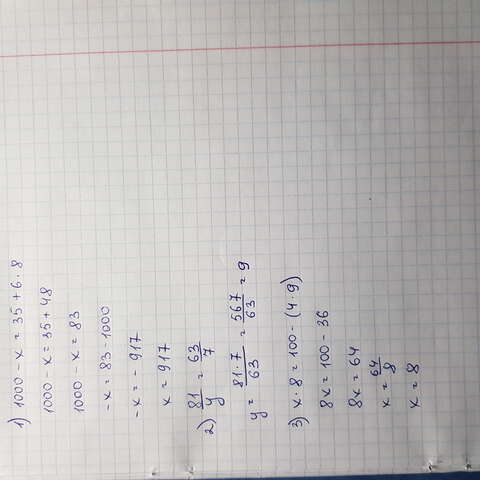 1) 1000 - x = 35 + 6 · 8
1000 - x = 35 + 48
1000 - x = 83
-x = 83 - 1000
-x = - 917
x = 917
2) 81/y = 63/7
y = 81·7/63 = 567/63 = 9
3) x · 8 = 100 - (4 · 9)
8x = 100 - 36
8x = 64
x = 64/8
x = 8